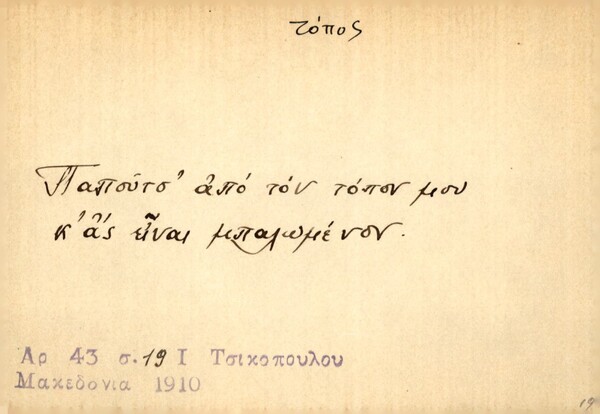 τόπος
Παποῦτσ' ἀπό τόν τόπον μου
κ' ἄς εἶναι μπαλωμένον.
Αρ 43 σ.19 Ι Τσικοπουλου
Μακεδονια 1910
19